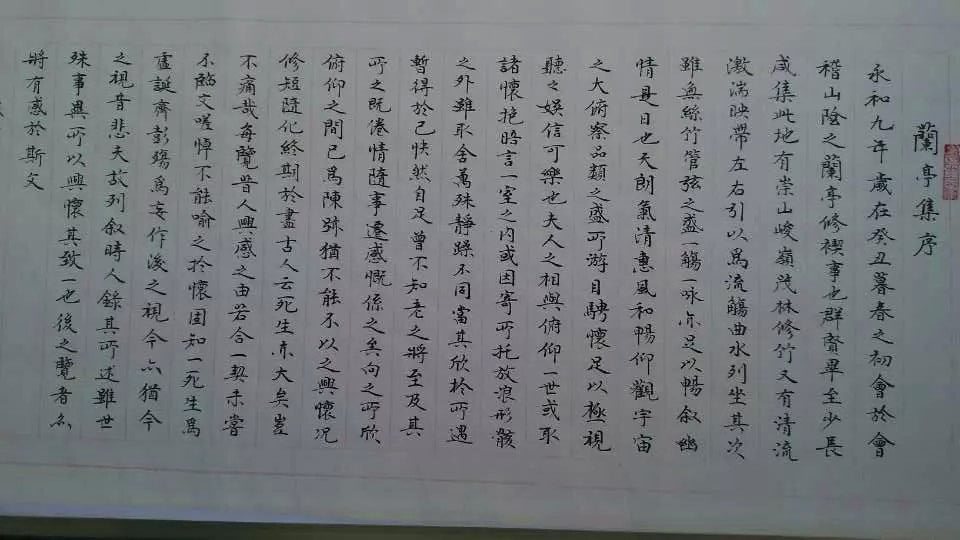 蘭亭集序
永和九年歲在癸丑暮春之初會於會
稽山陰之蘭亭修禊事也群賢畢至少長
咸集此地有崇山峻嶺茂林修竹又有清流
激湍映帶左右引以爲流觴曲水列坐其次
雖無絲竹管弦之盛一觴一咏亦足以暢叙幽
情是日也天朗氣清惠風和暢仰觀宇宙
之大俯察品類之盛所游目騁懷足以極視
聽之娛信可樂也夫人之相與俯仰一世或取
諸懷抱晤言一室之内或因寄所托放浪形骸
之外雖取舍萬殊靜躁不同當其欣於所遇
暫得於己快然自足曾不知老之將至及其
所之既倦情隨事遷感慨係之矣向之所欣
俯仰之間已爲陳跡猶不能不以之興懷况
修短隨化終期於盡古人云死生亦大矣豈
不痛哉每覽昔人興感之由若合一契未嘗
不臨文嗟悼不能喻之於懷固知一死生爲
虛誕齊彭殤爲妄作後之視今亦猶今
之視昔悲夫故列叙時人錄其所述雖世
殊事異所以興懷其致一也後之覽者亦
將有感於斯文